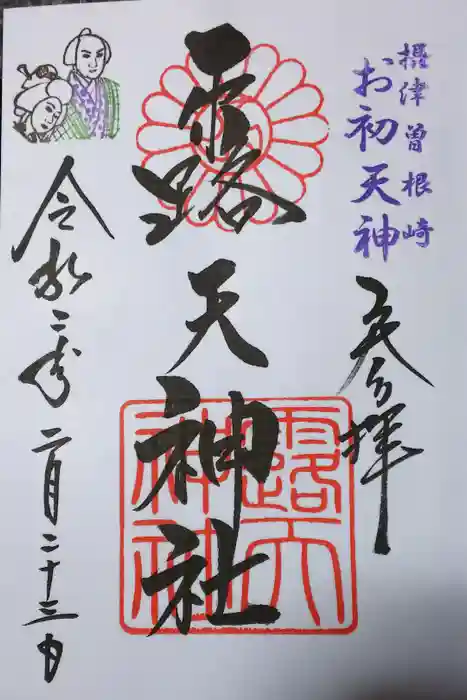 摂津曽根崎
お初天神
奉拝
露天神社
露天神社
令和二年二月二十三日